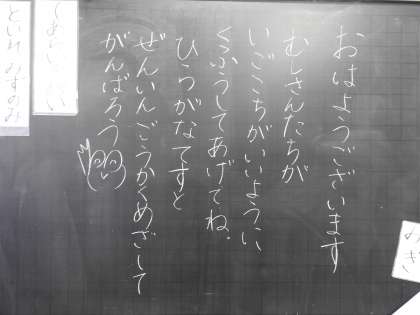 おはようございます
むしさんたちが
いごこちがいいように
くふうしてあげてね。
ひらがなてすと
ぜんいんごうかくめざして
がんばろう